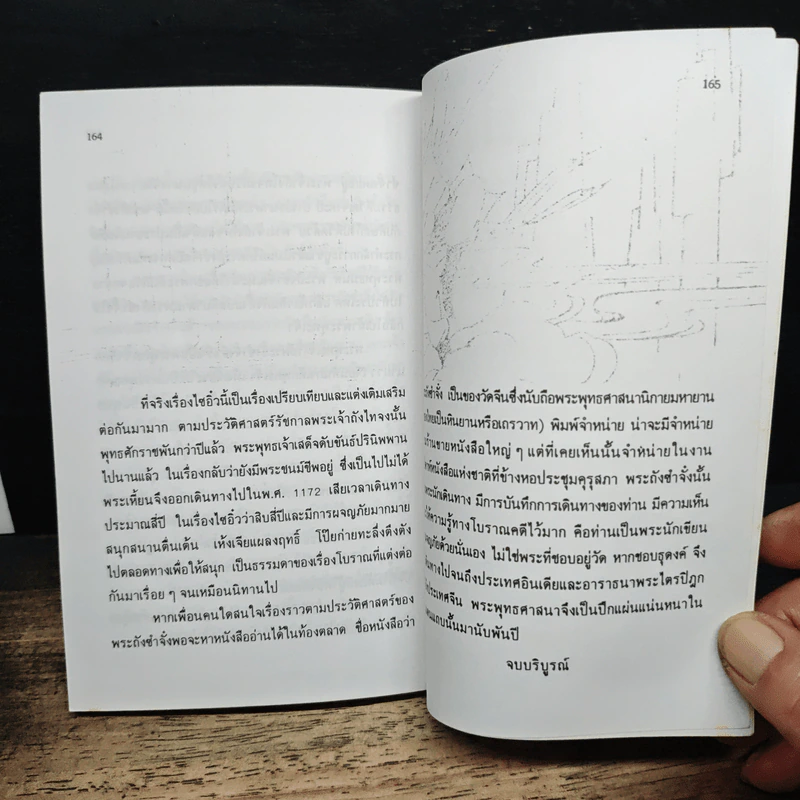 164
ที่จริงเรื่องไซอิ๋วนี้เป็นเรื่องเปรียบเทียบและแต่งเติมเสริม
ต่อกันมามาก ตามประวัติศาสตร์รัชกาลพระเจ้าถังไทจงนั้น
พุทธศักราชพันกว่าปีแล้ว พระพุทธเจ้าเสด็จดับขันธ์ปรินิพพาน
ไปนานแล้ว ในเรื่องกลับว่ายังมีพระชนม์ชีพอยู่ ซึ่งเป็นไปไม่ได้
พระเหี้ยนจึงออกเดินทางไปในพ.ศ. 1172 เสียเวลาเดินทาง
ประมาณสี่ปี ในเรื่องไซอิ๋วว่าสิบสี่ปีและมีการผจญภัยมากมาย
สนุกสนานตื่นเต้น เห้งเจียแผลงฤทธิ์ โป๊ยก่ายทะลึ่งตึงตัง
ไปตลอดทางเพื่อให้สนุก เป็นธรรมดาของเรื่องโบราณที่แต่งต่อ
กันมาเรื่อย ๆ จนเหมือนนิทานไป
หากเพื่อนคนใดสนใจเรื่องราวตามประวัติศาสตร์ของ
พระถังซำจั๋งพอจะหาหนังสืออ่านได้ในท้องตลาด ชื่อหนังสือว่า
165
ซำจั๋ง เป็นของวัดจีนซึ่งนับถือพระพุทธศาสนานิกายมหายาน
เป็นหินยานหรือเถรวาท) พิมพ์จำหน่าย น่าจะมีจำหน่าย
ร้านขายหนังสือใหญ่ ๆ แต่ที่เคยเห็นนั้นจำหน่ายในงาน
หนังสือแห่งชาติที่ข้างหอประชุมคุรุสภา พระถังซำจั๋งนั้น
พระนักเดินทาง มีการบันทึกการเดินทางของท่าน มีความเห็น
ให้ความรู้ทางโบราณคดีไว้มาก คือท่านเป็นพระนักเขียน
ผจญภัยด้วยนั่นเอง ไม่ใช่พระที่ชอบอยู่วัด หากชอบธุดงค์ จึง
ทางไปจนถึงประเทศอินเดียและอาราธนาพระไตรปิฎก
ประเทศจีน พระพุทธศาสนาจึงเป็นปึกแผ่นแน่นหนาใน
แถบนั้นมานับพันปี
จบบริบูรณ์